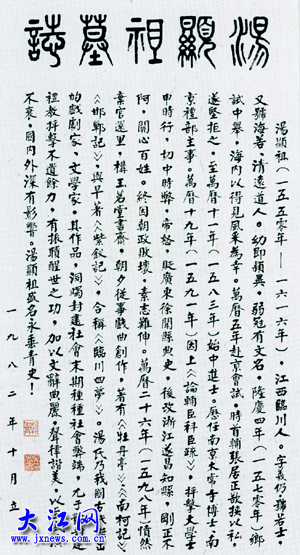 湯顯祖墓誌
湯顯祖（一五五零年——一六一六年），江西臨川人，字義仍，號若士，
又號海若、清遠道人。幼即穎異，弱冠有文名，隆慶四年（一五七零年）鄉
試中舉，海内以得見風采為幸。萬曆五年赴京會試，時首輔張居正欲援以私，
遂堅拒之，至萬曆十一年（一五八三年）始中進士。歷任南京太常寺博士、南
京禮部主事。萬曆十九年（一五九一年）因上《論輔臣科臣疏》，抨擊大學士
申時行，切中時弊，帝怒，貶廣東徐聞縣典史，後改浙江遂昌知縣，剛正不
阿，關心百姓。終因朝政敗壞，素志難伸。萬曆二十六年（一五九八年）憤然
棄官還里，構玉茗堂書齋，朝夕從事戲曲創作，著有《牡丹亭》、《南柯記》、
《邯鄲記》，與早著《紫釵記》，合稱《臨川四夢》。湯氏乃我國古
的戲劇家、文學家。其作品，洞燭封建社會末期種種社會弊端，尤于
禮教抨擊不遺餘力，有振聵醒世之功，加以文辭典麗，聲律諧美，以
不衰，國内外深有影響。湯顯祖盛名永垂青史！
一九八二年十月立
大江网